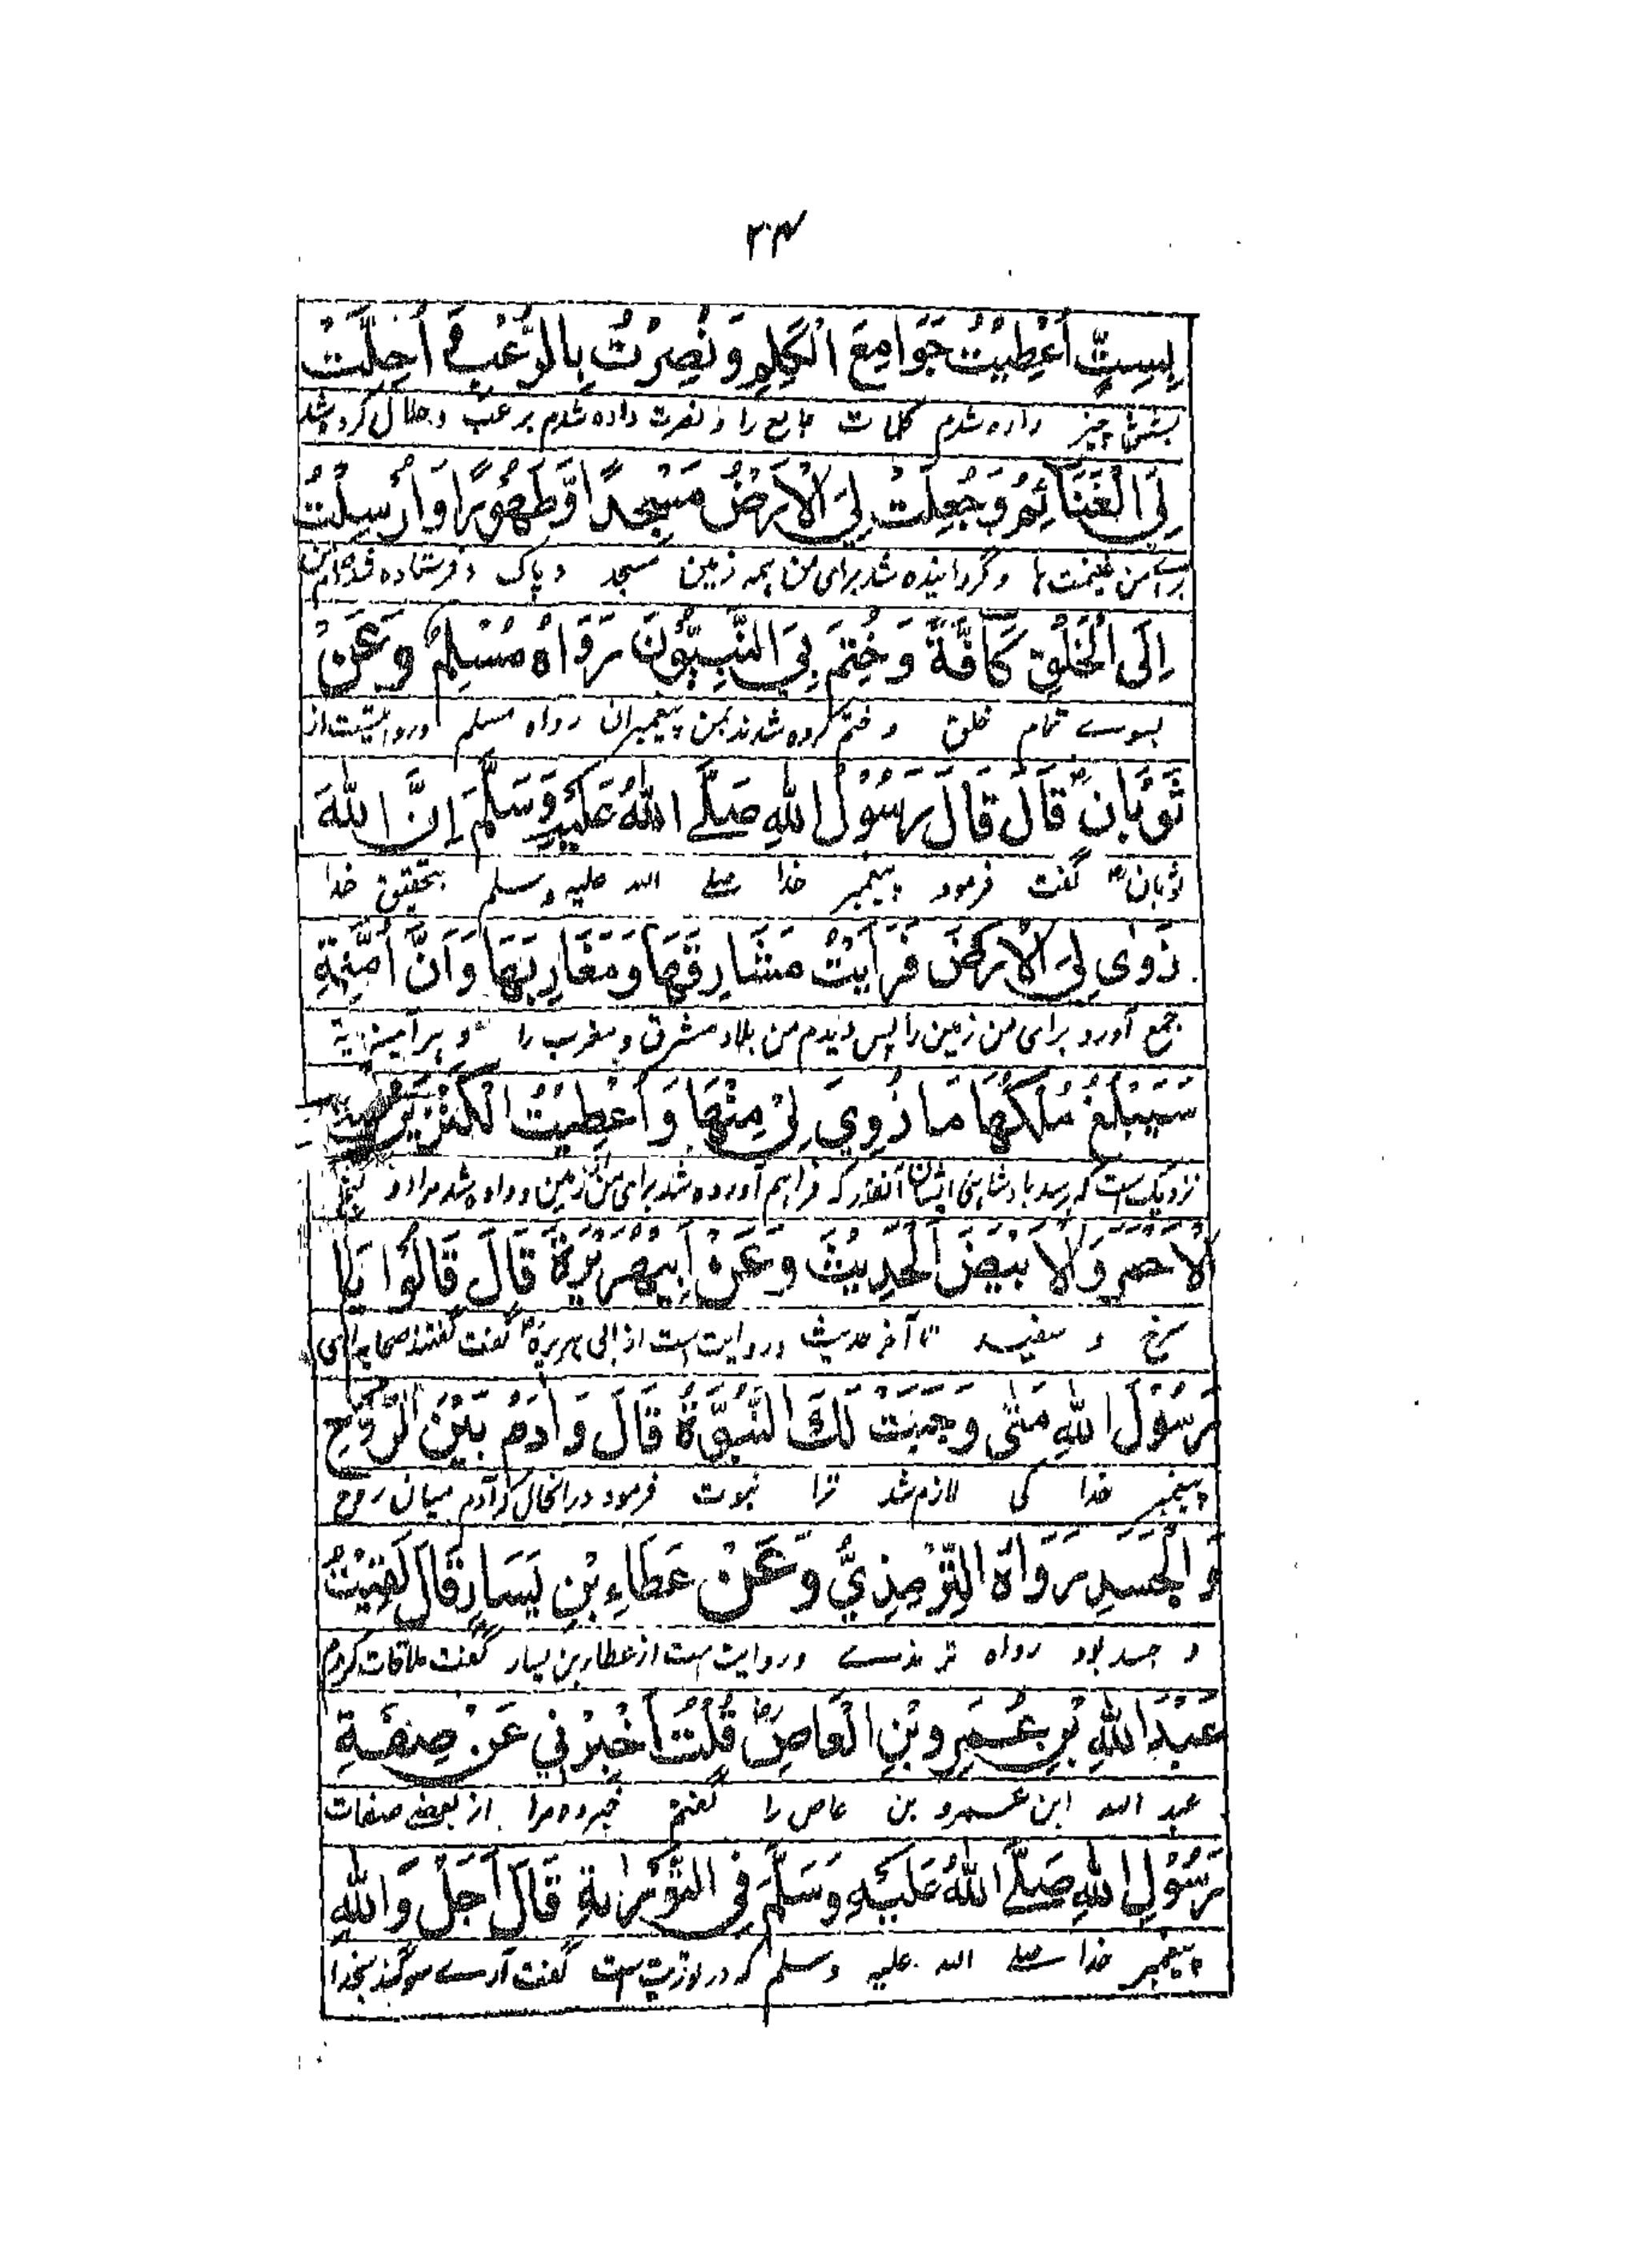 ۲۰۴
بِسِتٍّ اُعْطِيْتُ جَوَامِعَ الْكَلِمِ وَ نُصِرْتُ بِالرُّعْبِ وَ اُحِلَّتْ
بشش چیز داده شدم کلمات جامع را و نصرت داده شدم برعب و حلال کرده شد
لِيَ الْغَنَائِمُ وَجُعِلَتْ لِيَ الْاَرْضُ مَسْجِدًا وَّطَهُوْرًا وَاُرْسِلْتُ
برای من غنیمت ها و گردانیده شد برای من همه زمین مسجد و پاک و فرستاده شده ام من
اِلَى الْخَلْقِ كَافَّةً وَ خُتِمَ بِيَ النَّبِيُّوْنَ رَوَاهُ مُسْلِمٌ وَعَنْ
بسوے تمام خلق و ختم کرده شدند بمن پیغمبران رواه مسلم و روایتست از
ثَوْبَانَ رض قَالَ قَالَ رَسُوْلُ اللهِ صَلَّى اللهُ عَلَيْهِ وَسَلَّمَ اِنَّ اللهَ
ثوبان رض گفت فرمود پیغمبر خدا صلے الله علیه و سلم بتحقیق خدا
زَوٰى لِيَ الْاَرْضَ فَرَاَيْتُ مَشَارِقَهَا وَمَغَارِبَهَا وَاَنَّ اُمَّتِيْ
جمع آورد برای من زمین را پس دیدم من بلاد مشرق و مغرب را و هر آمینه
سَيَبْلُغُ مُلْكُهَا مَا زُوِيَ لِيْ مِنْهَا وَ اُعْطِيْتُ الْكَنْزَيْنِ
نزدیک است که رسد بادشاهی ایشان آنقدر که فراهم آورده شد برای من از زمین و داده شد مرا دو
الْاَحْمَرَ وَالْاَبْيَضَ الْحَدِيْثَ وَعَنْ اَبِيْهُرَيْرَةَ قَالَ قَالُوْا يَا
سرخ و سفید تا آخر حدیث و روایت است از ابی هریره رض گفت گفتند صحابه ای
رَسُوْلَ اللهِ مَتٰى وَجَبَتْ لَكَ النُّبُوَّةُ قَالَ وَاٰدَمُ بَيْنَ الرُّوْحِ
پیغمبر خدا کی لازم شد ترا نبوت فرمود در انحال که آدم میان روح
وَ الْجَسَدِ رَوَاهُ التِّرْمِذِيُّ وَعَنْ عَطَاءِ بْنِ يَسَارٍ قَالَ لَقِيْتُ
و جسد بود رواه ترمذے و روایت است از عطار بن یسار گفت ملاقات کردم
عَبْدَ اللهِ بْنِ عَمْرِو بْنِ الْعَاصِ رض قُلْتُ اَخْبِرْنِيْ عَنْ صِفَةِ
عبد الله ابن عمرو بن عاص را گفتم خبر ده مرا از بعضے صفات
رَسُوْلِ اللهِ صَلَّى اللهُ عَلَيْهِ وَسَلَّمَ فِي التَّوْرٰىةِ قَالَ اَجَلْ وَاللهِ
پیغمبر خدا صلے الله علیه و سلم که در توریت است گفت آرے سوگند بخدا